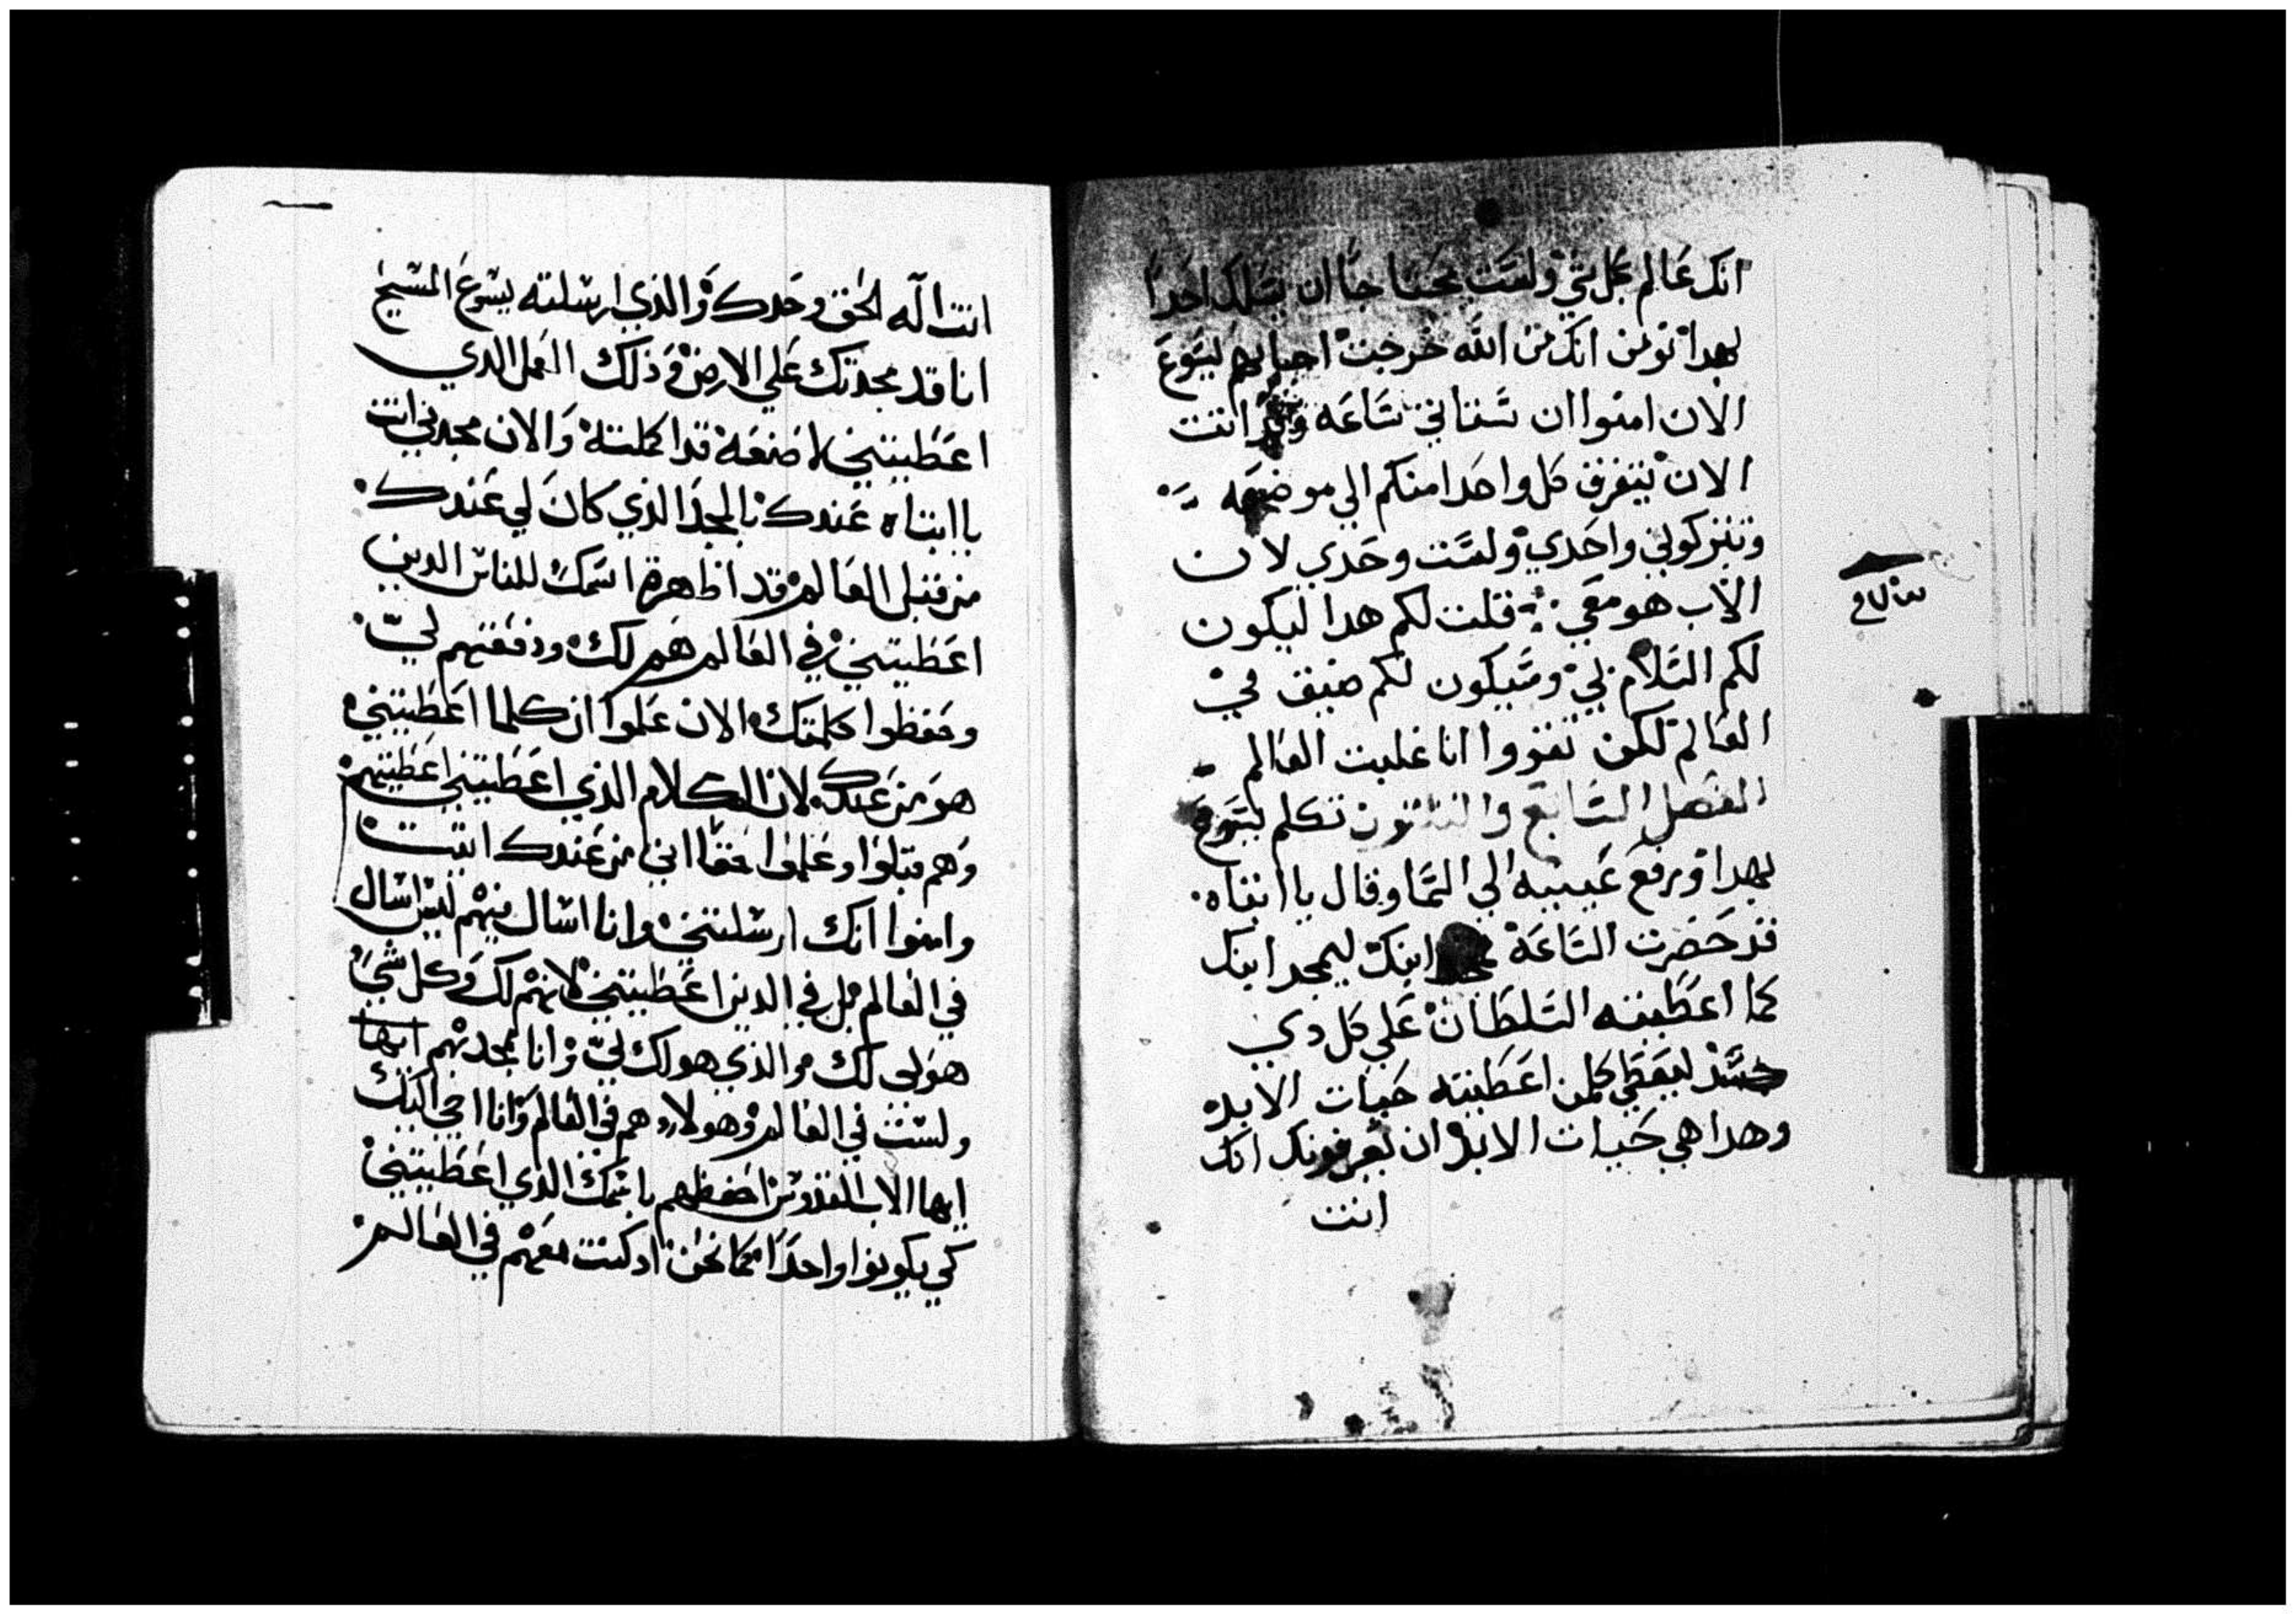 انك عالم بكل شي ولست محتاجا ان يسلك احدا
بهدا نومن انك من الله خرجت اجابهم يسوع
الان امنوا ان ستاتي ساعه وقد اتت
الان يتفرق كل واحد منكم الي موضعه
وتتركوني واحدي ولست وحدي لان
الاب هو معي قلت لكم هدا ليكون
لكم السلام بي وسيكون لكم ضيق في
العالم لكن تقووا انا غلبت العالم
الفصل السابع والثلثون تكلم يسوع
بهدا ورفع عينيه الي السما وقال يا ابتاه
قد حضرت الساعة مجد ابنك ليمجد ابنك
كما اعطيته السلطان علي كل دي
جسد ليعطي كلمن اعطيته حيات الابد
وهدا هي حيات الابد ان يعرفونك انك
انت
انت اله الحق وحدك والذي ارسلته يسوع المسيح
انا قد مجدتك علي الارض وذلك العمل الدي
اعطيتني لاصنعه قد اكملته والان مجدني انت
يا ابتاه عندك بالمجد الذي كان لي عندك
من قبل العالم قد اظهرة اسمك للناس الدين
اعطيتني في العالم هم لك ودفعتهم لي
وحفظوا كلمتك الان علموا ان كلما اعطيتني
هو من عندك لان الكلام الذي اعطيتني اعطيتهم
وهم قبلوا وعلموا حقا اني من عندك اتيت
وامنوا انك ارسلتني وانا اسال فيهم ليس اسال
في العالم بل في الدين اعطيتني لانهم لك وكل شي
هو لي لك والذي هو لك لي وانا ممجد بهم
ولست في العالم وهولاء هم في العالم وانا اجي اليك
ايها الاب القدوس احفظهم باسمك الذي اعطيتني
كي يكونوا واحدا كما نحن اد كنت معهم في العالم